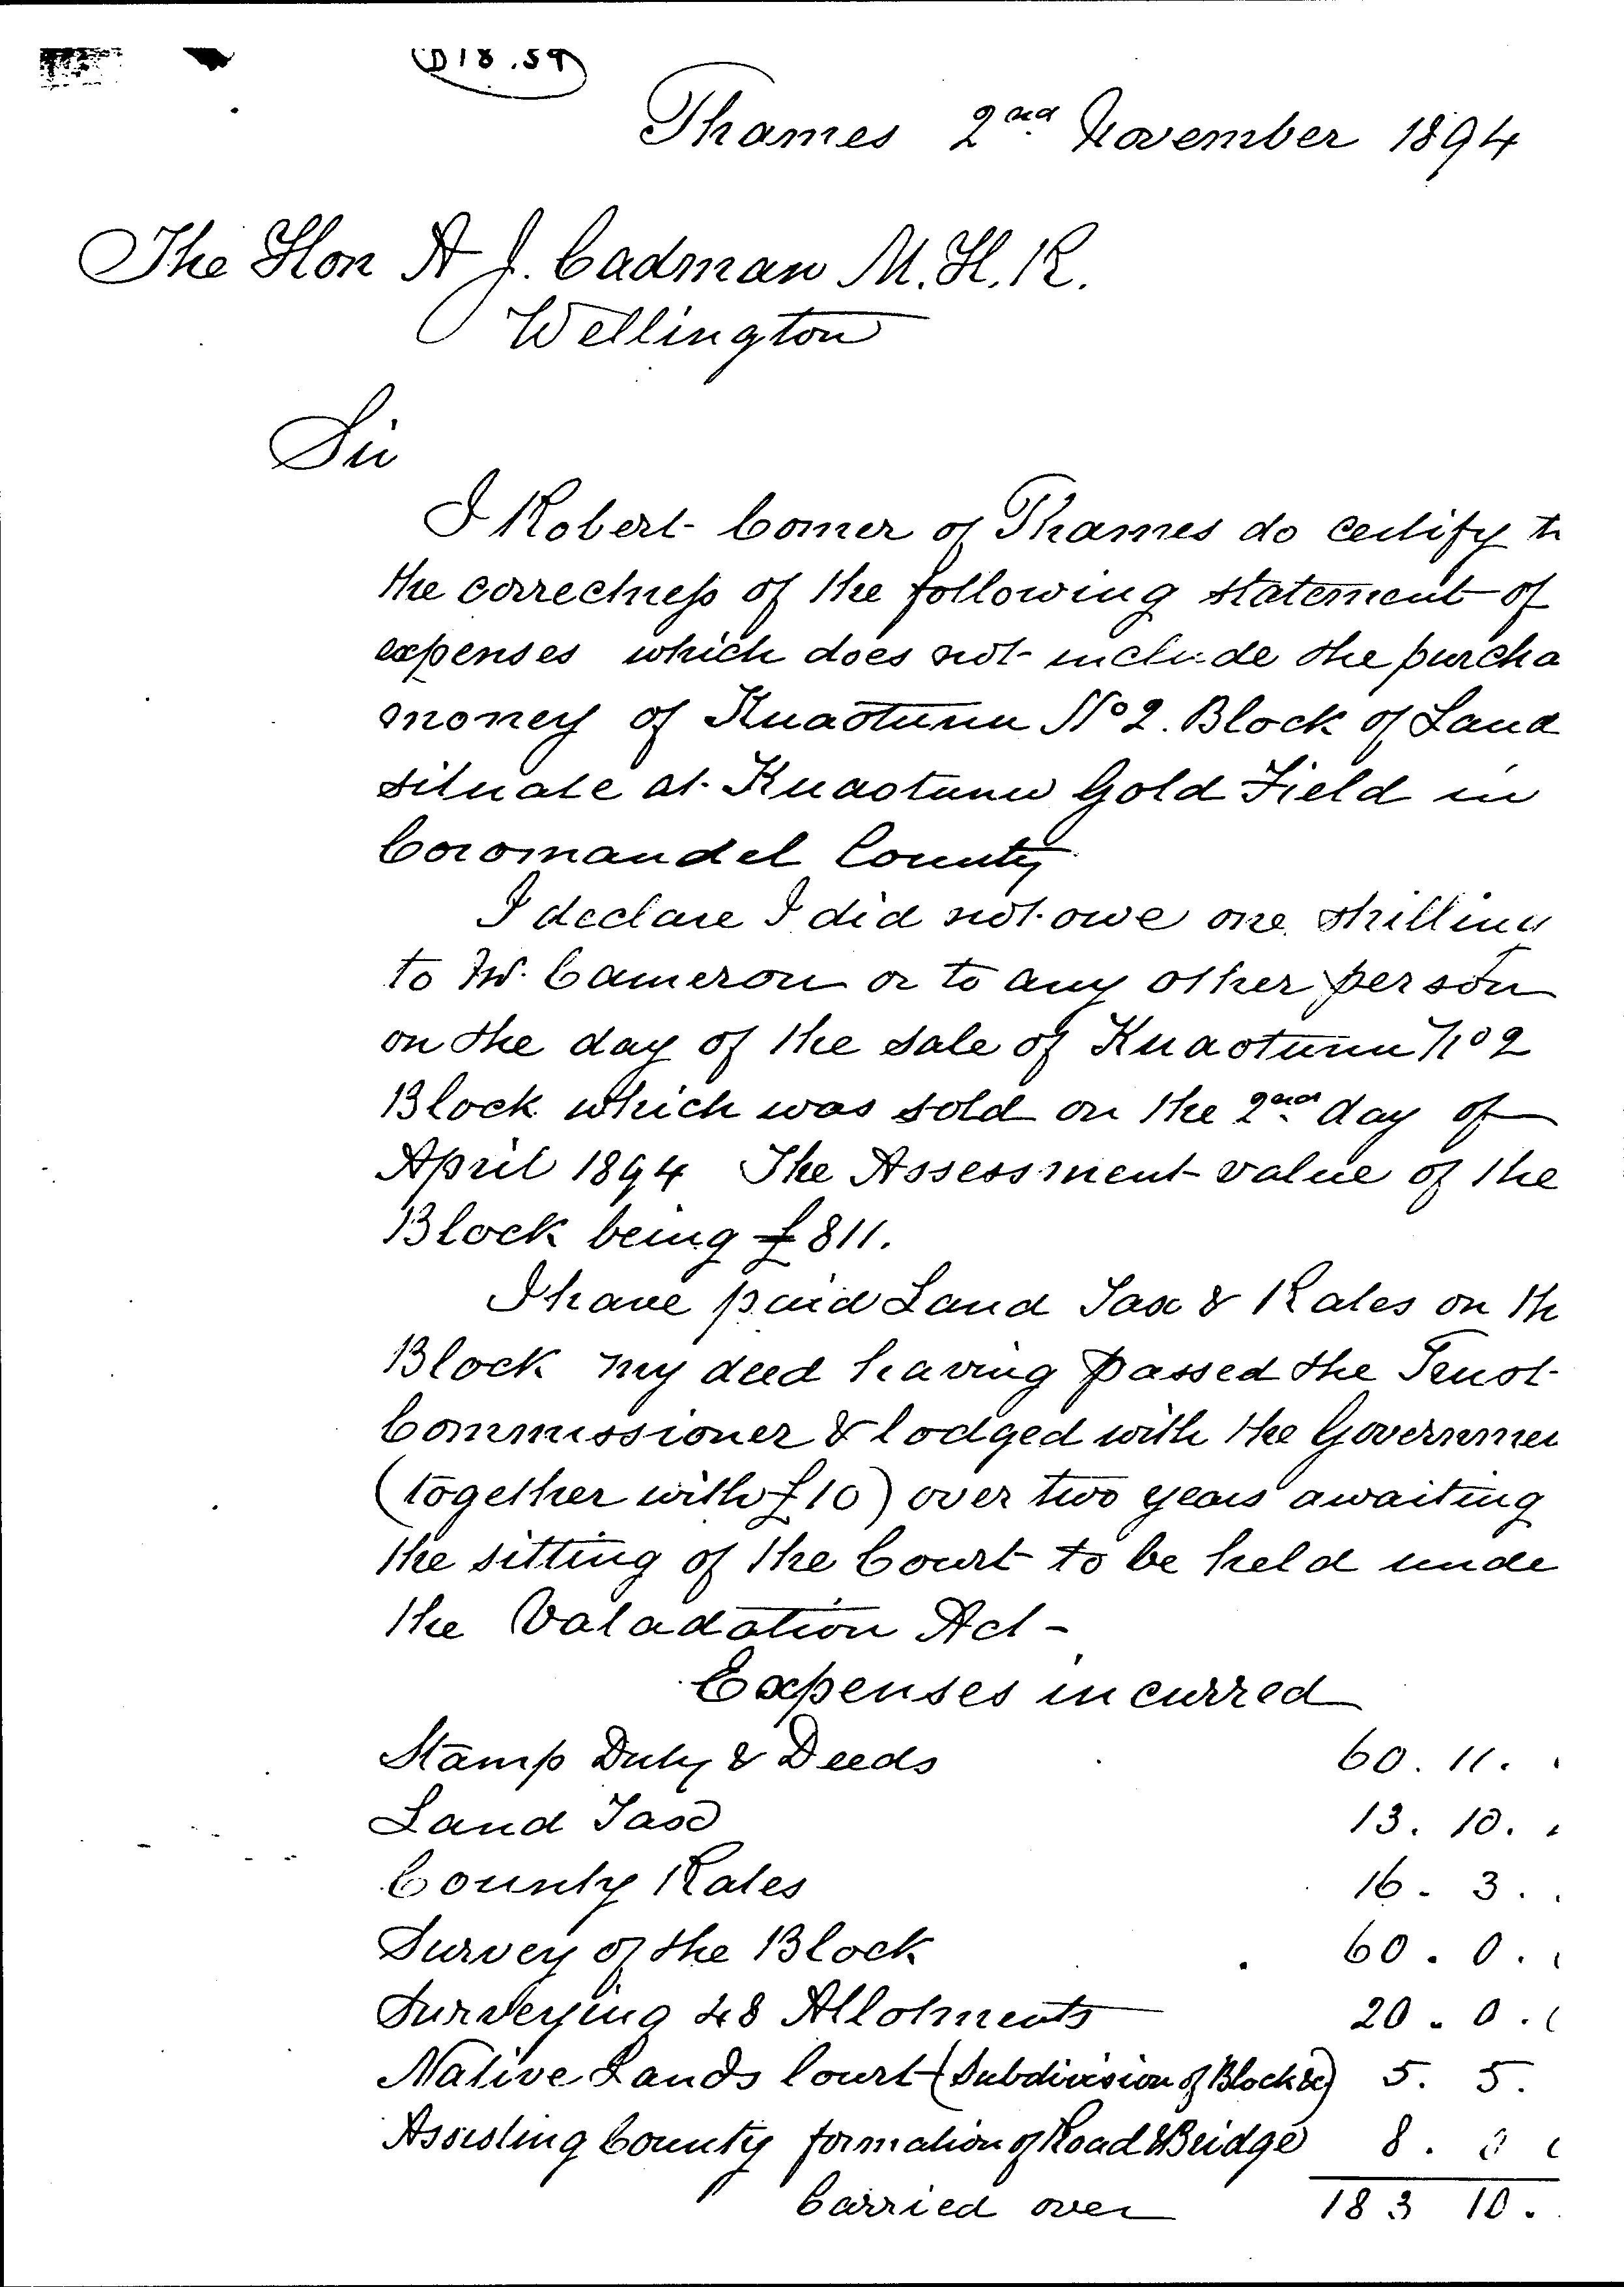 D18.59
Thames 2nd November 1894
The Hon A J. Cadman M.H.R.
Wellington
Sir
I Robert Comer of Thames do certify to
the correctness of the following statement of
expenses which does not include the purcha
money of Kuaotunu No 2. Block of Land
situate at Kuaotunu Gold Field in
Coromandel County
I declare I did not owe one shilling
to Mr. Cameron or to any other person
on the day of the sale of Kuaotunu No 2
Block which was sold on the 2nd day of
April 1894 The Assessment value of the
Block being £811.
I have paid Land Tax & Rates on th
Block my deed having passed the Trust
Commissioner & lodged with the Governmen
(together with £10) over two years awaiting
the sitting of the Court to be held unde
the Valadation Act -
Expenses incurred
Stamp Duty & Deeds 60. 11.
Land Tax 13. 10.
County Rates 16. 3.
Survey of the Block 60. 0.
Surveying 48 Allotments 20. 0.
Native Lands Court (Subdivision of Block &c) 5. 5.
Assisting County formation of Road & Bridge 8.
Carried over 183 10.